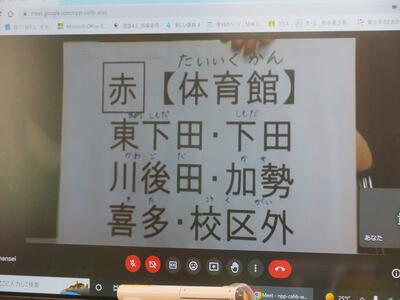 meet.google.com/npp-cahb-wws
Microsoft Office
たいいくかん
赤【体育館】
しもだ しもだ
東下田・下田
かわごだ かせ
川後田・加勢
きた こうくがい
喜多・校区外
あなた
ここに入力して検索
Meet - npp-cahb-w...
25℃